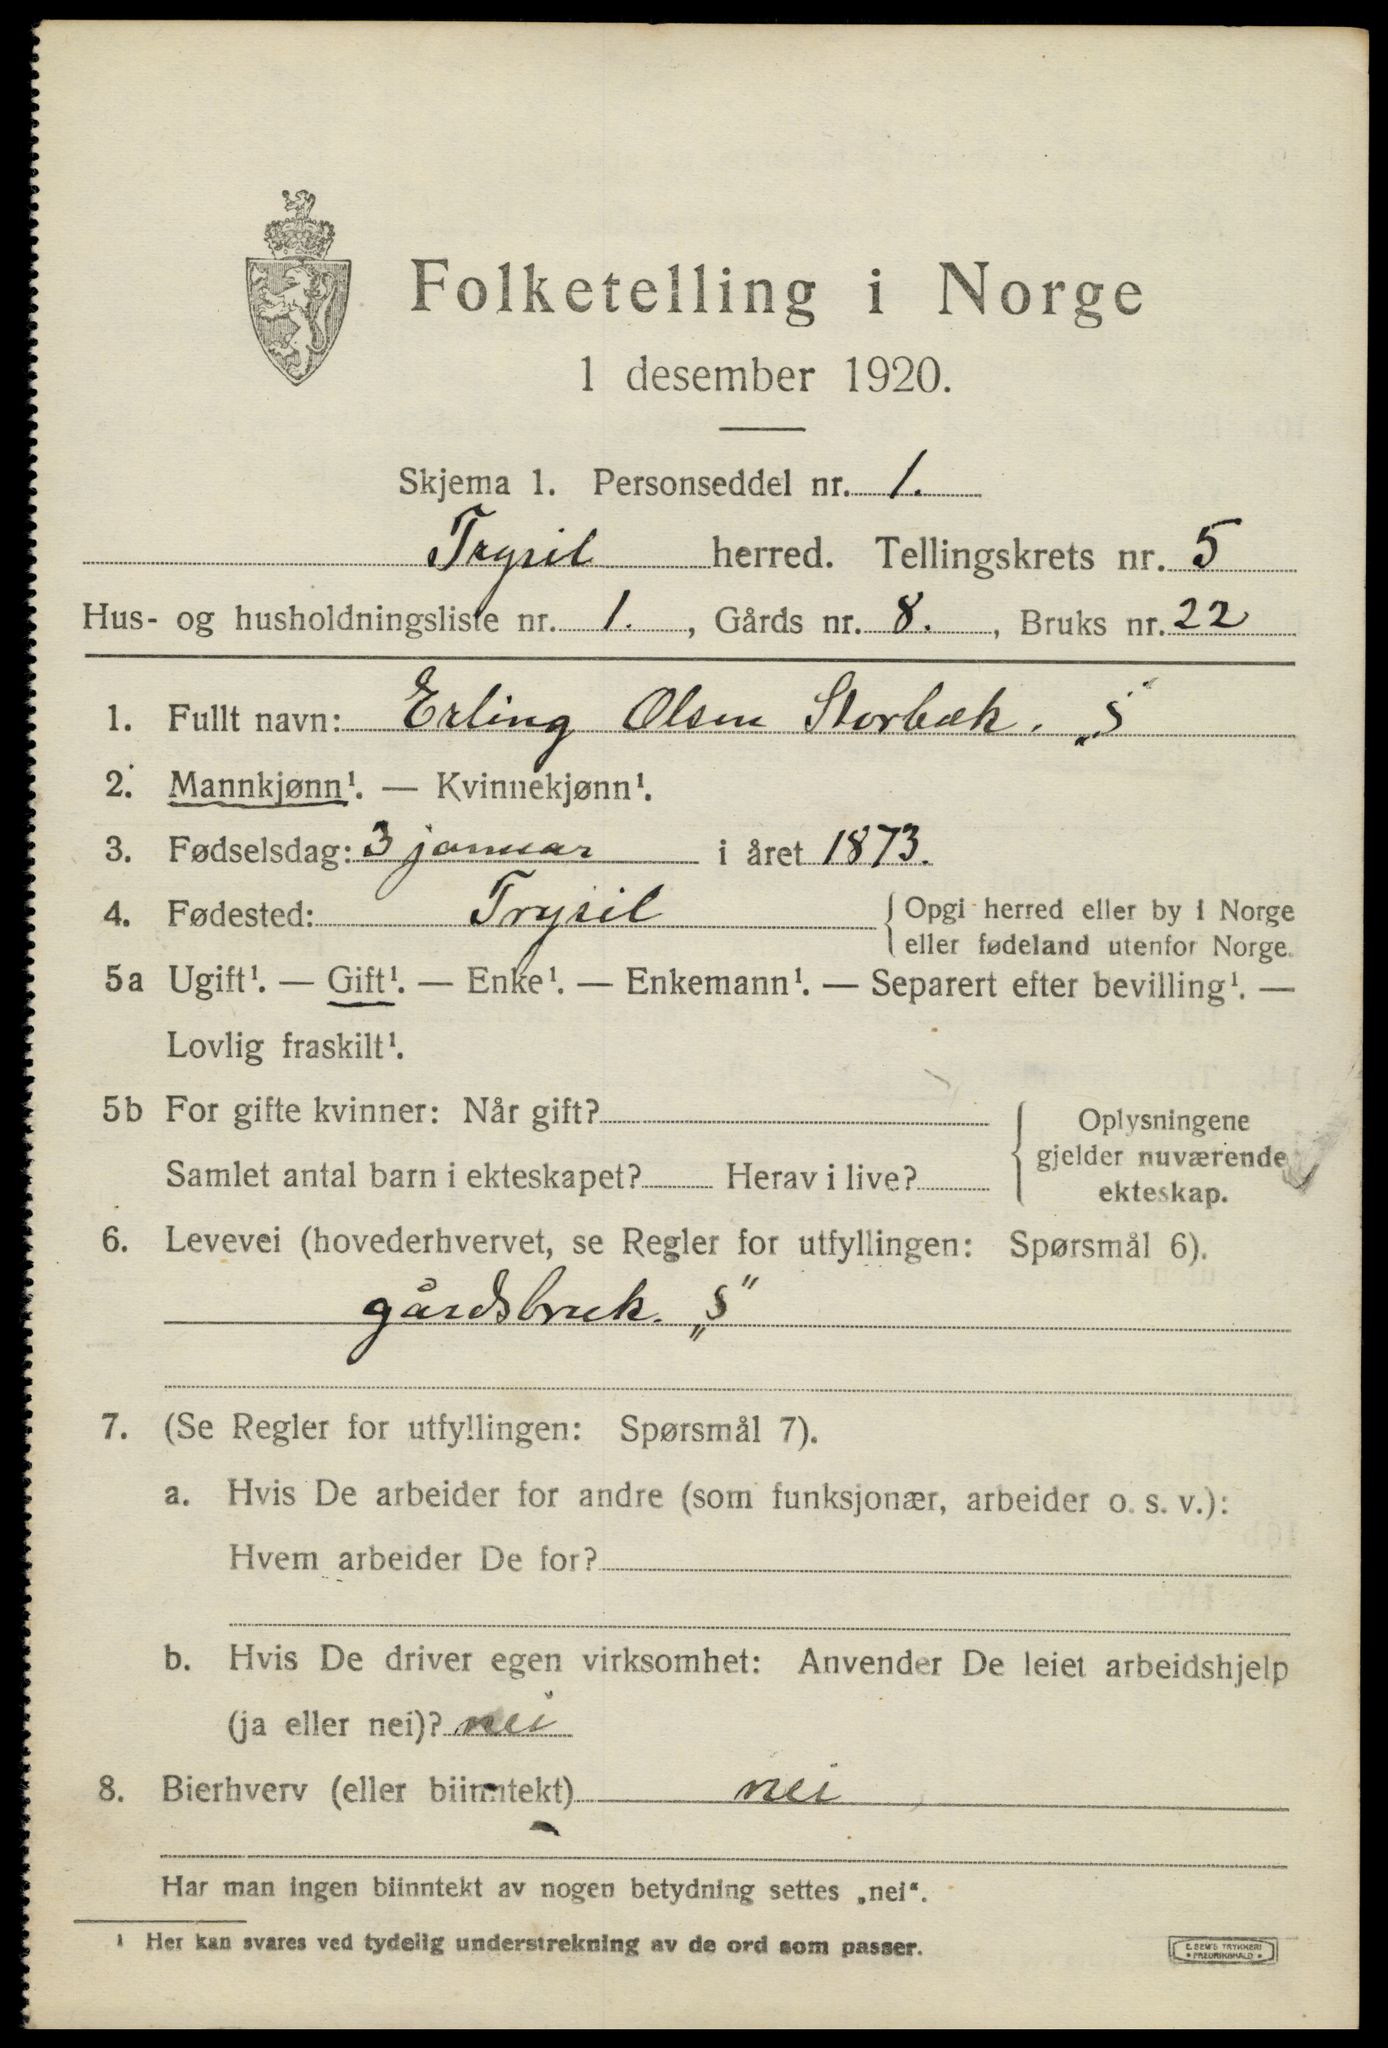 Folketelling i Norge
1 desember 1920.
Skjema 1. Personseddel nr. 1.
Trysil herred. Tellingskrets nr. 5
Hus- og husholdningsliste nr. 1., Gårds nr. 8., Bruks nr. 22
1. Fullt navn: Erling Olsen Storbæk. „S“
2. Mannkjønn¹. — Kvinnekjønn¹.
3. Fødselsdag: 3 januar i året 1873.
4. Fødested: Trysil { Opgi herred eller by i Norge
eller fødeland utenfor Norge.
5a Ugift¹. — Gift¹. — Enke¹. — Enkemann¹. — Separert efter bevilling¹. —
Lovlig fraskilt¹.
5b For gifte kvinner: Når gift?
Samlet antal barn i ekteskapet? Herav i live?
Oplysningene
gjelder nuværende
ekteskap.
6. Levevei (hovederhvervet, se Regler for utfyllingen: Spørsmål 6).
gårdsbruk. „S“
7. (Se Regler for utfyllingen: Spørsmål 7).
a. Hvis De arbeider for andre (som funksjonær, arbeider o. s. v.):
Hvem arbeider De for?
b. Hvis De driver egen virksomhet: Anvender De leiet arbeidshjelp
(ja eller nei)? nei
8. Bierhverv (eller biinntekt) nei
Har man ingen biinntekt av nogen betydning settes „nei“.
¹ Her kan svares ved tydelig understrekning av de ord som passer.
E. SEM'S TRYKKERI
* FREDRIKSHALD *